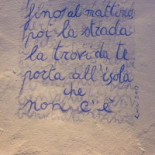 fino al mattino
poi la strada
la trovi da te
porta all'isola
che
non c'è